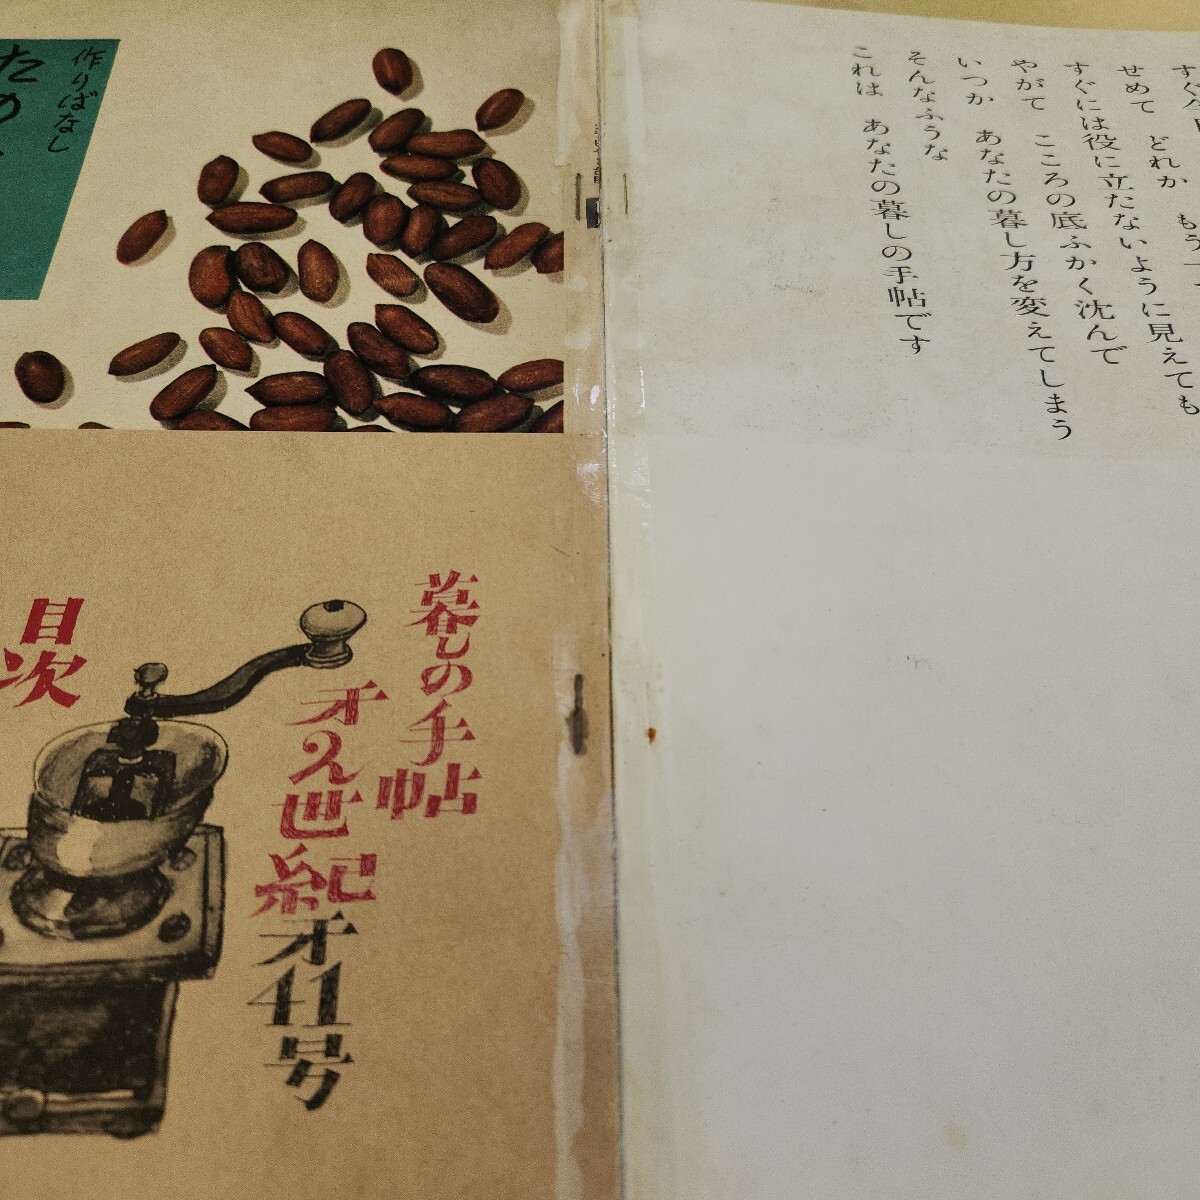 せめて どれか もう
すぐには役に立たないように見えても
やがて こころの底ふかく沈んで
いつか あなたの暮し方を変えてしまう
そんなふうな
これは あなたの暮しの手帖です
作りばなし
暮しの手帖
才2世紀
才41号
目次